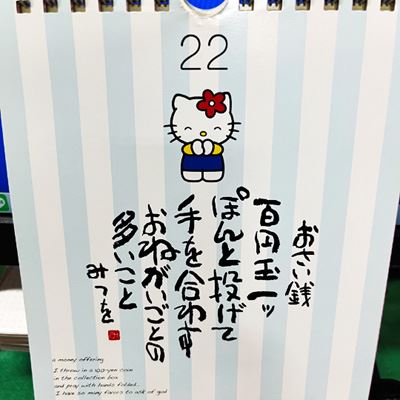 22
おさい銭
百円玉一ッ
ぽんと投げて
手を合わす
おねがいごとの
多いこと
みつを
a money offering
I throw in a 100-yen coin
in the collection box
and pray with hands folded...
I have so many favors to ask of god